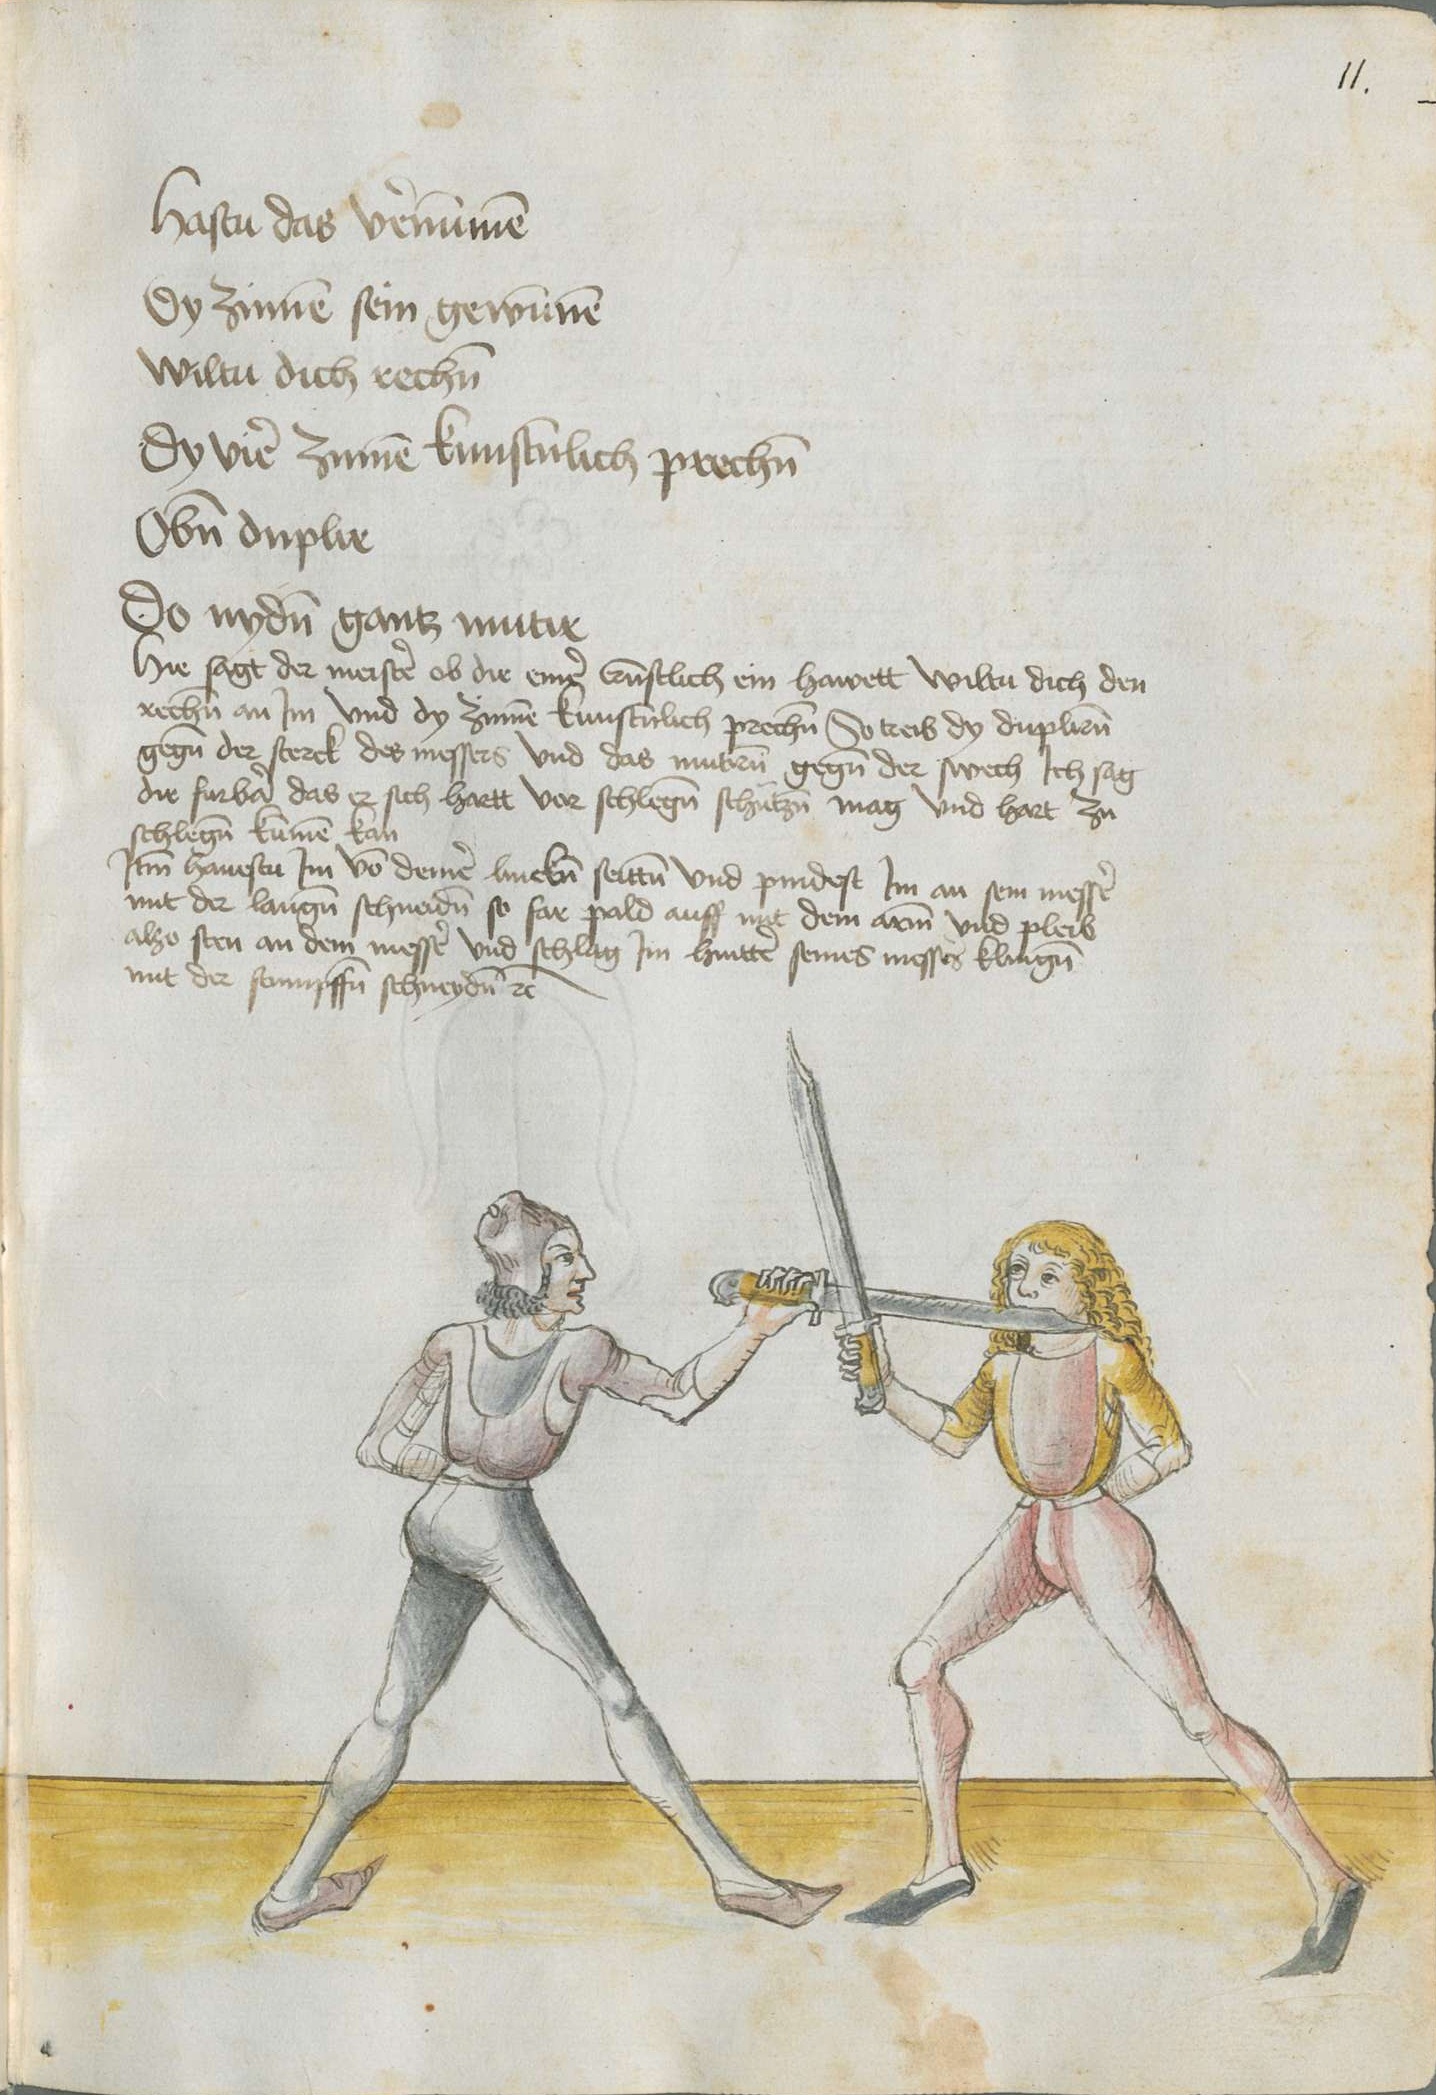 11.
Hastu das v'nūmē
Dy zinnē sein gewūnē
Wiltu dich rechn̄
Dy vie' zinnē kunstn̄lich prechn̄
Obn̄ duplir
Do nydn̄ gantz mutir
Hie sagt der meiste' ob dir eine' ernstlich ein hawett wiltu dich den
rechn̄ an Im vnd dy zinnē kunstn̄lich prechn̄ So treib dy duplirn̄
gegn̄ der sterck des messers vnd das mutirn̄ gegn̄ der swech Ich sag
dir furbar das er sich hartt vor schlegn̄ schützn̄ mag vnd hart zu
schlegn̄ kūmē kan
Itm̄ hauestu Im vō deine' linckn̄ seittn̄ vnd pindest Im an sein messe'
mit der langn̄ schneidn̄ so far pald auff mit dem arm̄ vnd pleib
also sten an dem messe' vnd schlag Im hintte' seines messe's klingn̄
mit der stumpffn̄ schneydn̄ rc